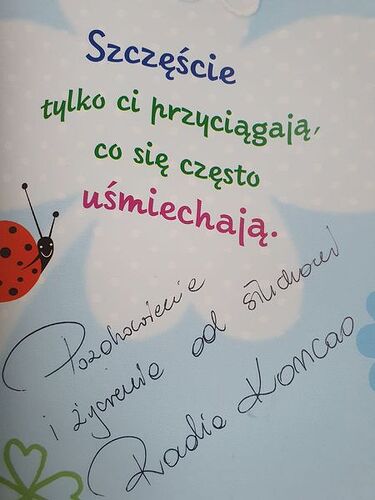 Szczęście
tylko ci przyciągają,
co się często
uśmiechają.
Pozdrowienia
i życzenia od
Radia Koncao